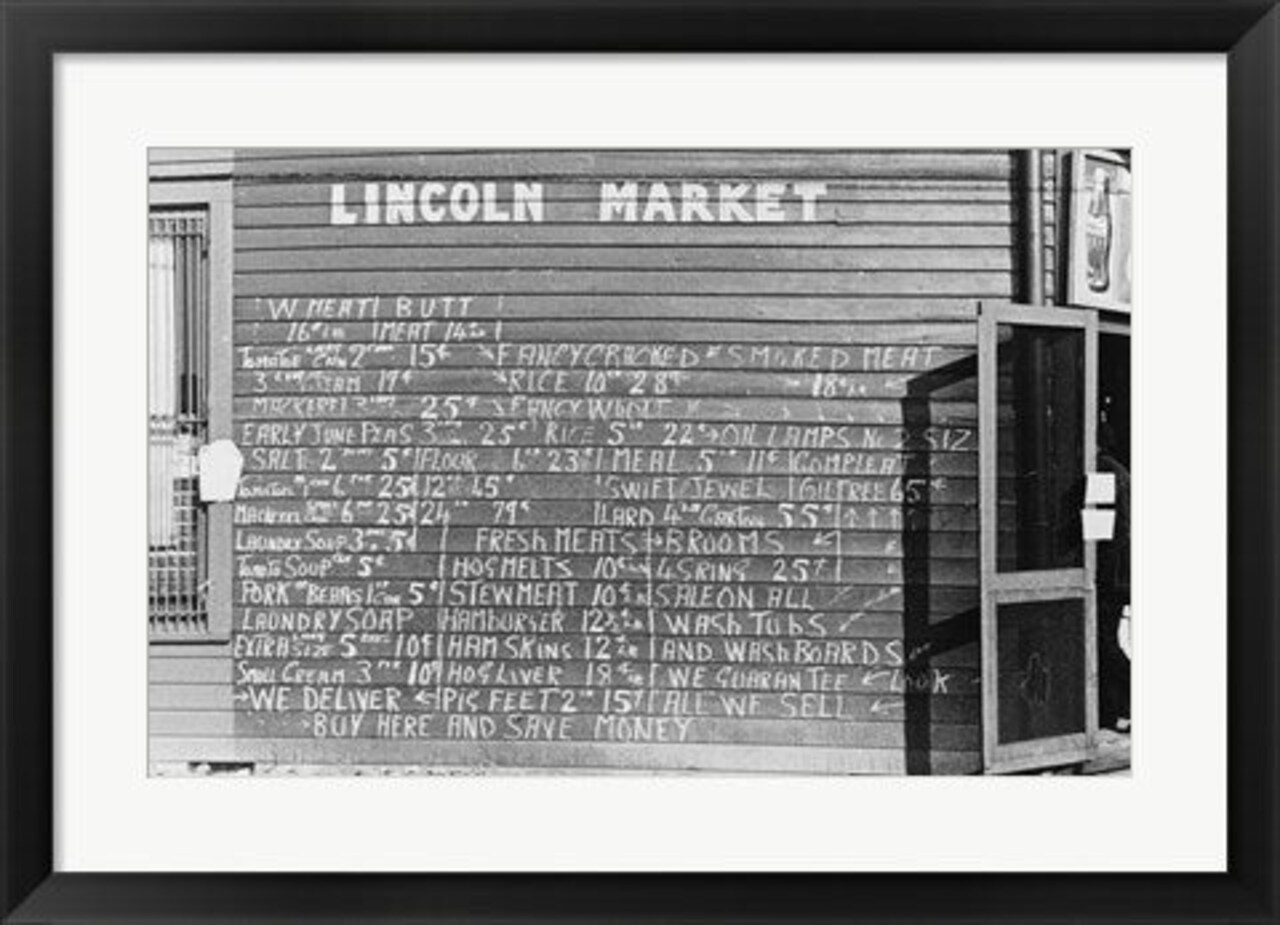 LINCOLN MARKET
W. MEAT BUTT
16¢ MEAT 14
15¢ FANCY CRACKED SMOKED MEAT
3 CREAM 19¢ RICE 10 28¢ 18
MACKEREL 25¢ FANCY WHOLE
EARLY JUNE PEAS 3 25¢ RICE 5 22¢ OIL LAMPS No 2 SIZ
SALT 2 5¢ FLOUR 6 23¢ MEAL 5 11¢ COMPLEAT
6 25¢ 12 45¢ SWIFT JEWEL 65¢
MACKEREL 6 25¢ 24 79¢ LARD 4 CARTON 55¢
LAUNDRY SOAP 3 5¢ FRESH MEATS BROOMS
TOMATO SOUP 5¢ HOG MELTS 10¢ 4 SRING 25¢
PORK BEANS 5¢ STEW MEAT 10¢ SALE ON ALL
LAUNDRY SOAP HAMBURGER 12½ WASH TUBS
EXTRA SIZE 5 10¢ HAM SKINS 12 AND WASH BOARDS
SMALL CREAM 3 10¢ HOG LIVER 18¢ WE GUARANTEE LOOK
WE DELIVER PIG FEET 2 15¢ ALL WE SELL
BUY HERE AND SAVE MONEY